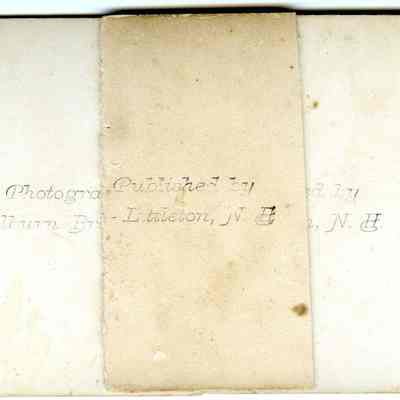 Photogra Published by ed by
lburn Br - Littleton, N. H. n, N. H.